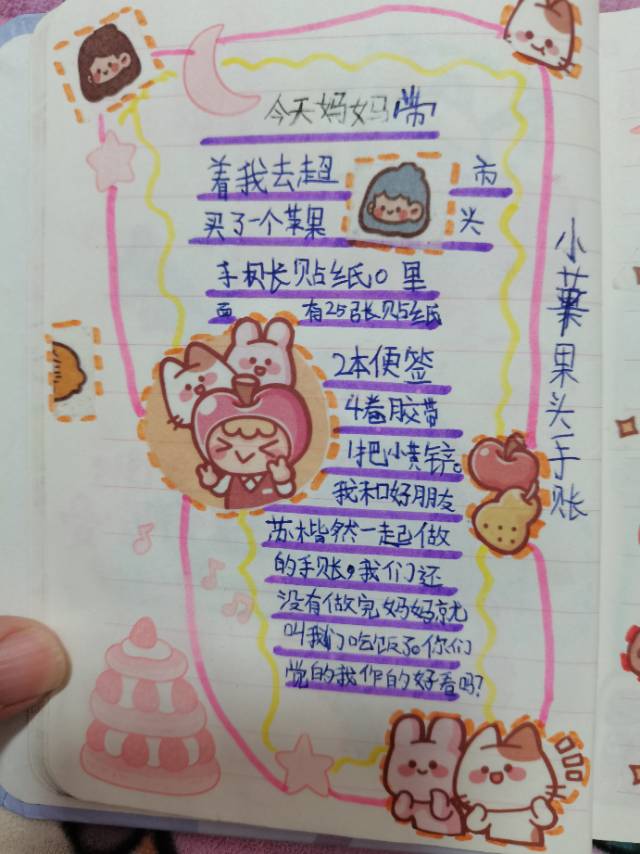 今天妈妈带
着我去超市
买了一个苹果头
手帐贴纸。里
面有25张贴纸
2本便签
4卷胶带
1把小剪
我和好朋友
苏楷然一起做
的手账,我们还
没有做完妈妈就
叫我们吃饭了。你们
觉的我作的好看吗?
小苹果头手账